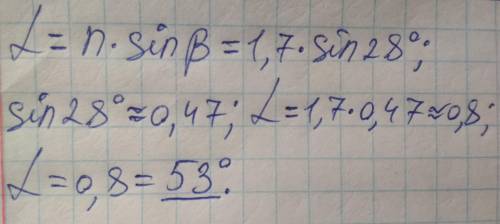 α = n·sinβ = 1,7·sin28°;
sin28°≈0,47; α=1,7·0,47≈0,8;
α=0,8=53°.